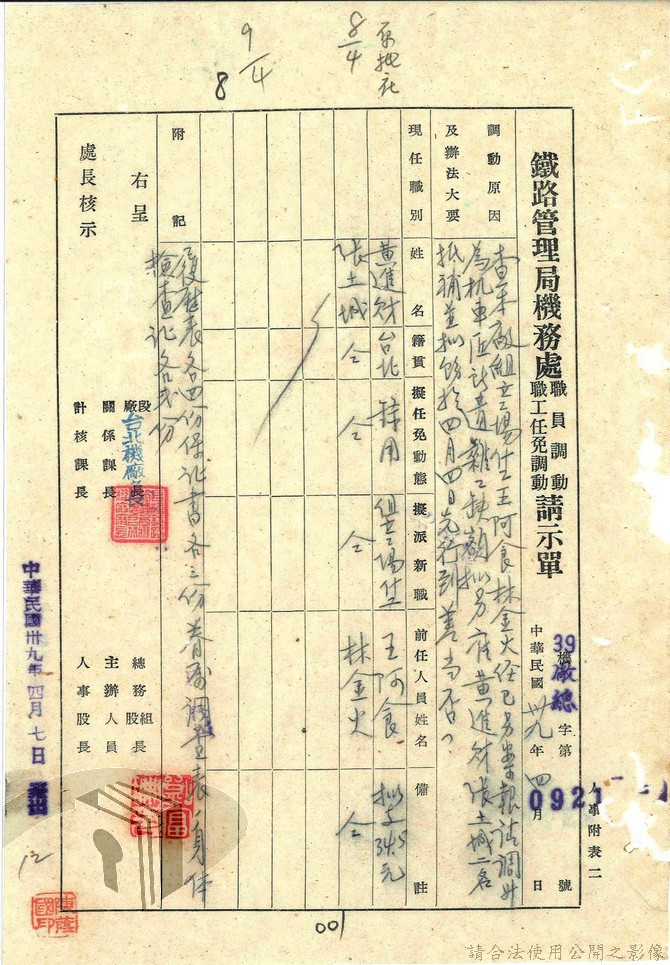 原批在
8/4
9/4
8
人事附表二
39機廠總字第0921號
中華民國卅九年四月 日
鐵路管理局機務處職員調動職工任免調動請示單
調動原因及辦法大要
查本廠組立工場仕王阿食林金火經已另案報請調升
為机車匠計遺雜工缺額擬另雇黃進財張土城二名
抵補並擬飭於四月四日先行到差當否？
現任職別
姓名
籍貫
擬任免動態
擬派新職
前任人員姓名
備註
黃進財 台北 錄用 組立場仕 王阿食 擬支345元
張土城 仝 仝 仝 林金火 仝
附記
履歷表各四份保証書各三份
調查表身体
檢查証各貳份
右呈
處長核示
段廠長
台北機廠長
關係課長
計核課長
總務組股長
主辦人員
人事股長
中華民國卅九年四月七日
12
001
請合法使用公開之影像